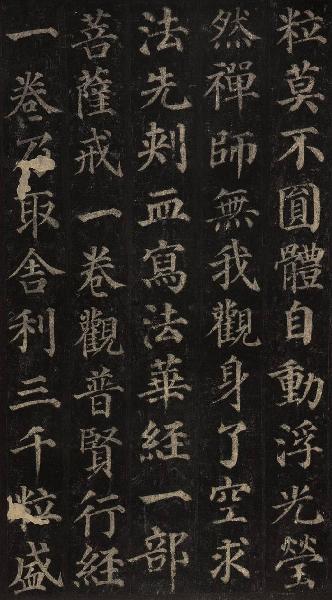 粒莫不圓體自動浮光瑩
然禪師無我觀身了空求
法先刺血寫法華經一部
菩薩戒一卷觀普賢行經
一卷乃取舍利三千粒盛